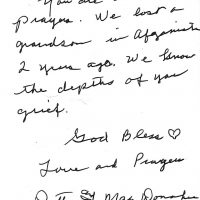 You are
prayers. We lost a
grandson in Afganista
2 years ago. We know
the depths of you
grief.
God Bless ♡
Love and Prayers
Mrs Donahu